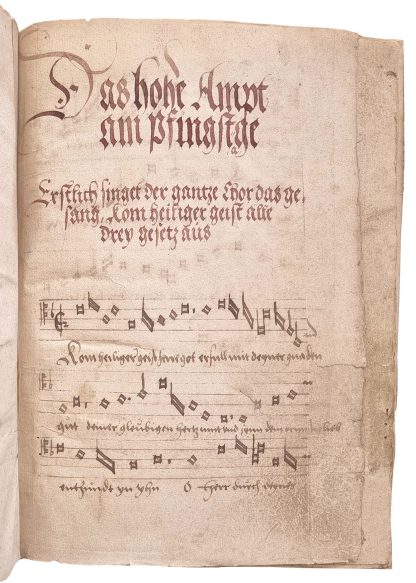 Das hohe Ampt
am Pfingstge
a
Erstlich singet der gantze Chor das ge,
sang, Kom heiliger geist alle
drey gesetz aus
Kom heiliger geist herre got erfull mit deyner gnaden
gut deiner gleubigen hertz mut vnd synn dein brunstig lieb
entzundt yn yhn O Herr durch deynes